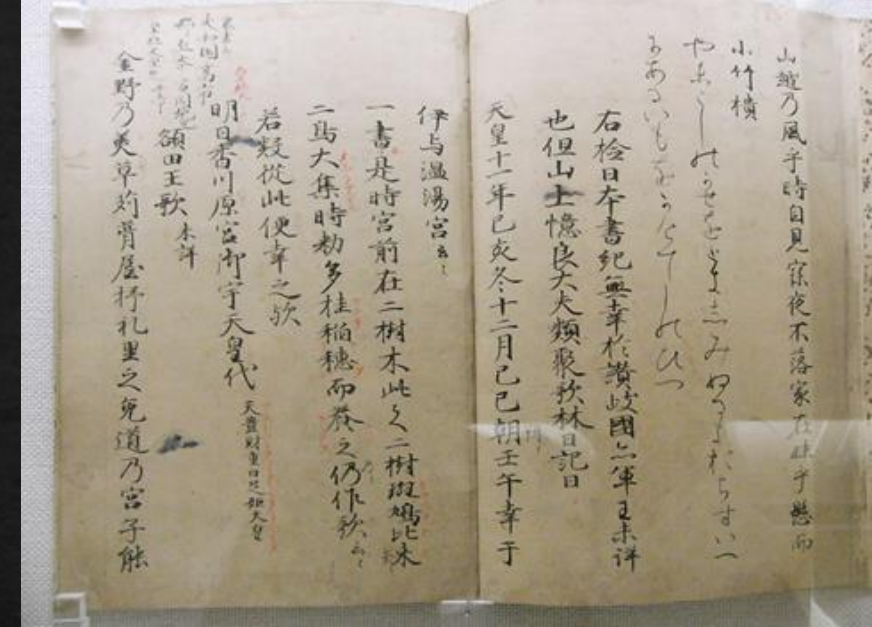 山越乃風乎時自見寐夜不落家在妹乎懸而
小竹櫃
やまこしのかせをときしみぬるよおちすいへ
にあるいもをかけてしのひつ
右検日本書紀無幸於讃岐國亦軍王未詳
也但山上憶良大夫類聚歌林曰記曰
天皇十一年己亥冬十二月己巳朔壬午幸于
伊与温湯宮云々
一書是時宮前在二樹木此之二樹斑鳩比米
二鳥大集時勅多挂稲穂而養之仍作歌云々
若疑從此便幸之歟
明日香川原宮御宇天皇代 天豊財重日足姫天皇
額田王歌 未詳
金野乃美草苅葺屋杼礼里之兎道乃宮子能